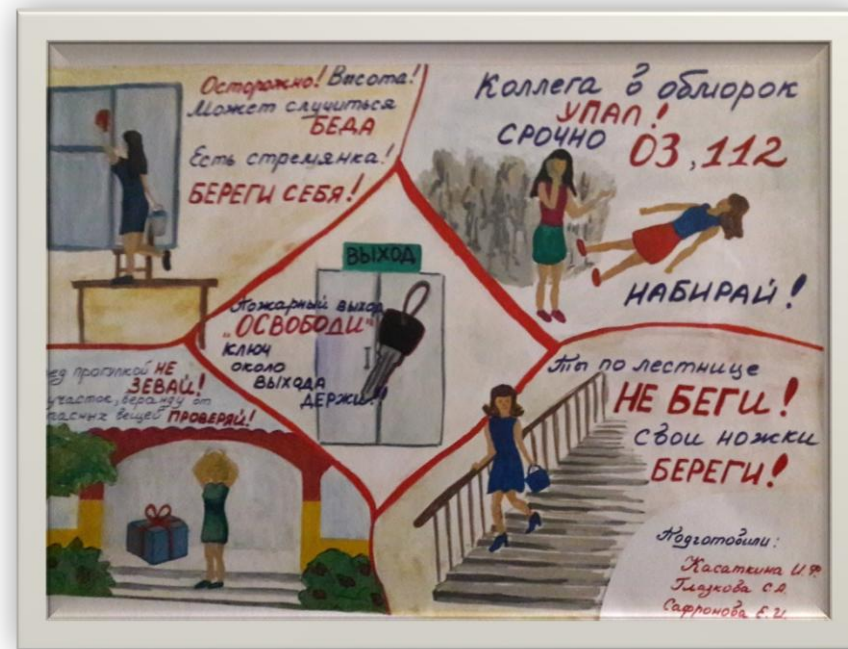 Осторожно! Высота!
Может случиться
БЕДА
Есть стремянка!
БЕРЕГИ СЕБЯ!
Коллега в обморок
УПАЛ!
СРОЧНО 03,112
НАБИРАЙ!
ВЫХОД
Пожарный выход
"ОСВОБОДИ"
КЛЮЧ
ОКОЛО
ВЫХОДА
ДЕРЖИ!!
ед прогулкой НЕ
ЗЕВАЙ!
участок, веранду от
пасных вещей ПРОВЕРЯЙ!
Ты по лестнице
НЕ БЕГИ!
свои ножки
БЕРЕГИ!
Подготовили:
Касаткина И.Ф.
Глазкова С.А.
Сафронова Е.И.